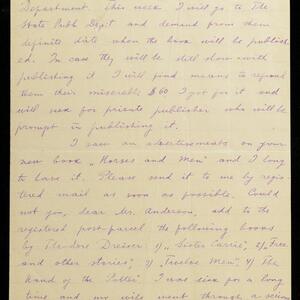 Department. This week I will go to the
State Publ. Dep:t and demand from them
definite date when the book will be publish-
ed. In case they will be still slow with
publishing it I will find means to refund
them their miserable $60 I got for it and
will seek for private publisher who will be
prompt in publishing it.
I saw an advertisements on your
new book „Horses and Men" and I long
to have it. Please send it to me by regis-
tered mail as soon as possible. Could
not you, dear Mr. Anderson, add to the
registered post-parcel the following books
by Theodore Dreiser: 1/ „Sister Carrie", 2/ „Free
and other stories", 3/ „Twelve Men", 4/ The
Hand of the Potter". I was sick for a long
time and my wife went through a seri-